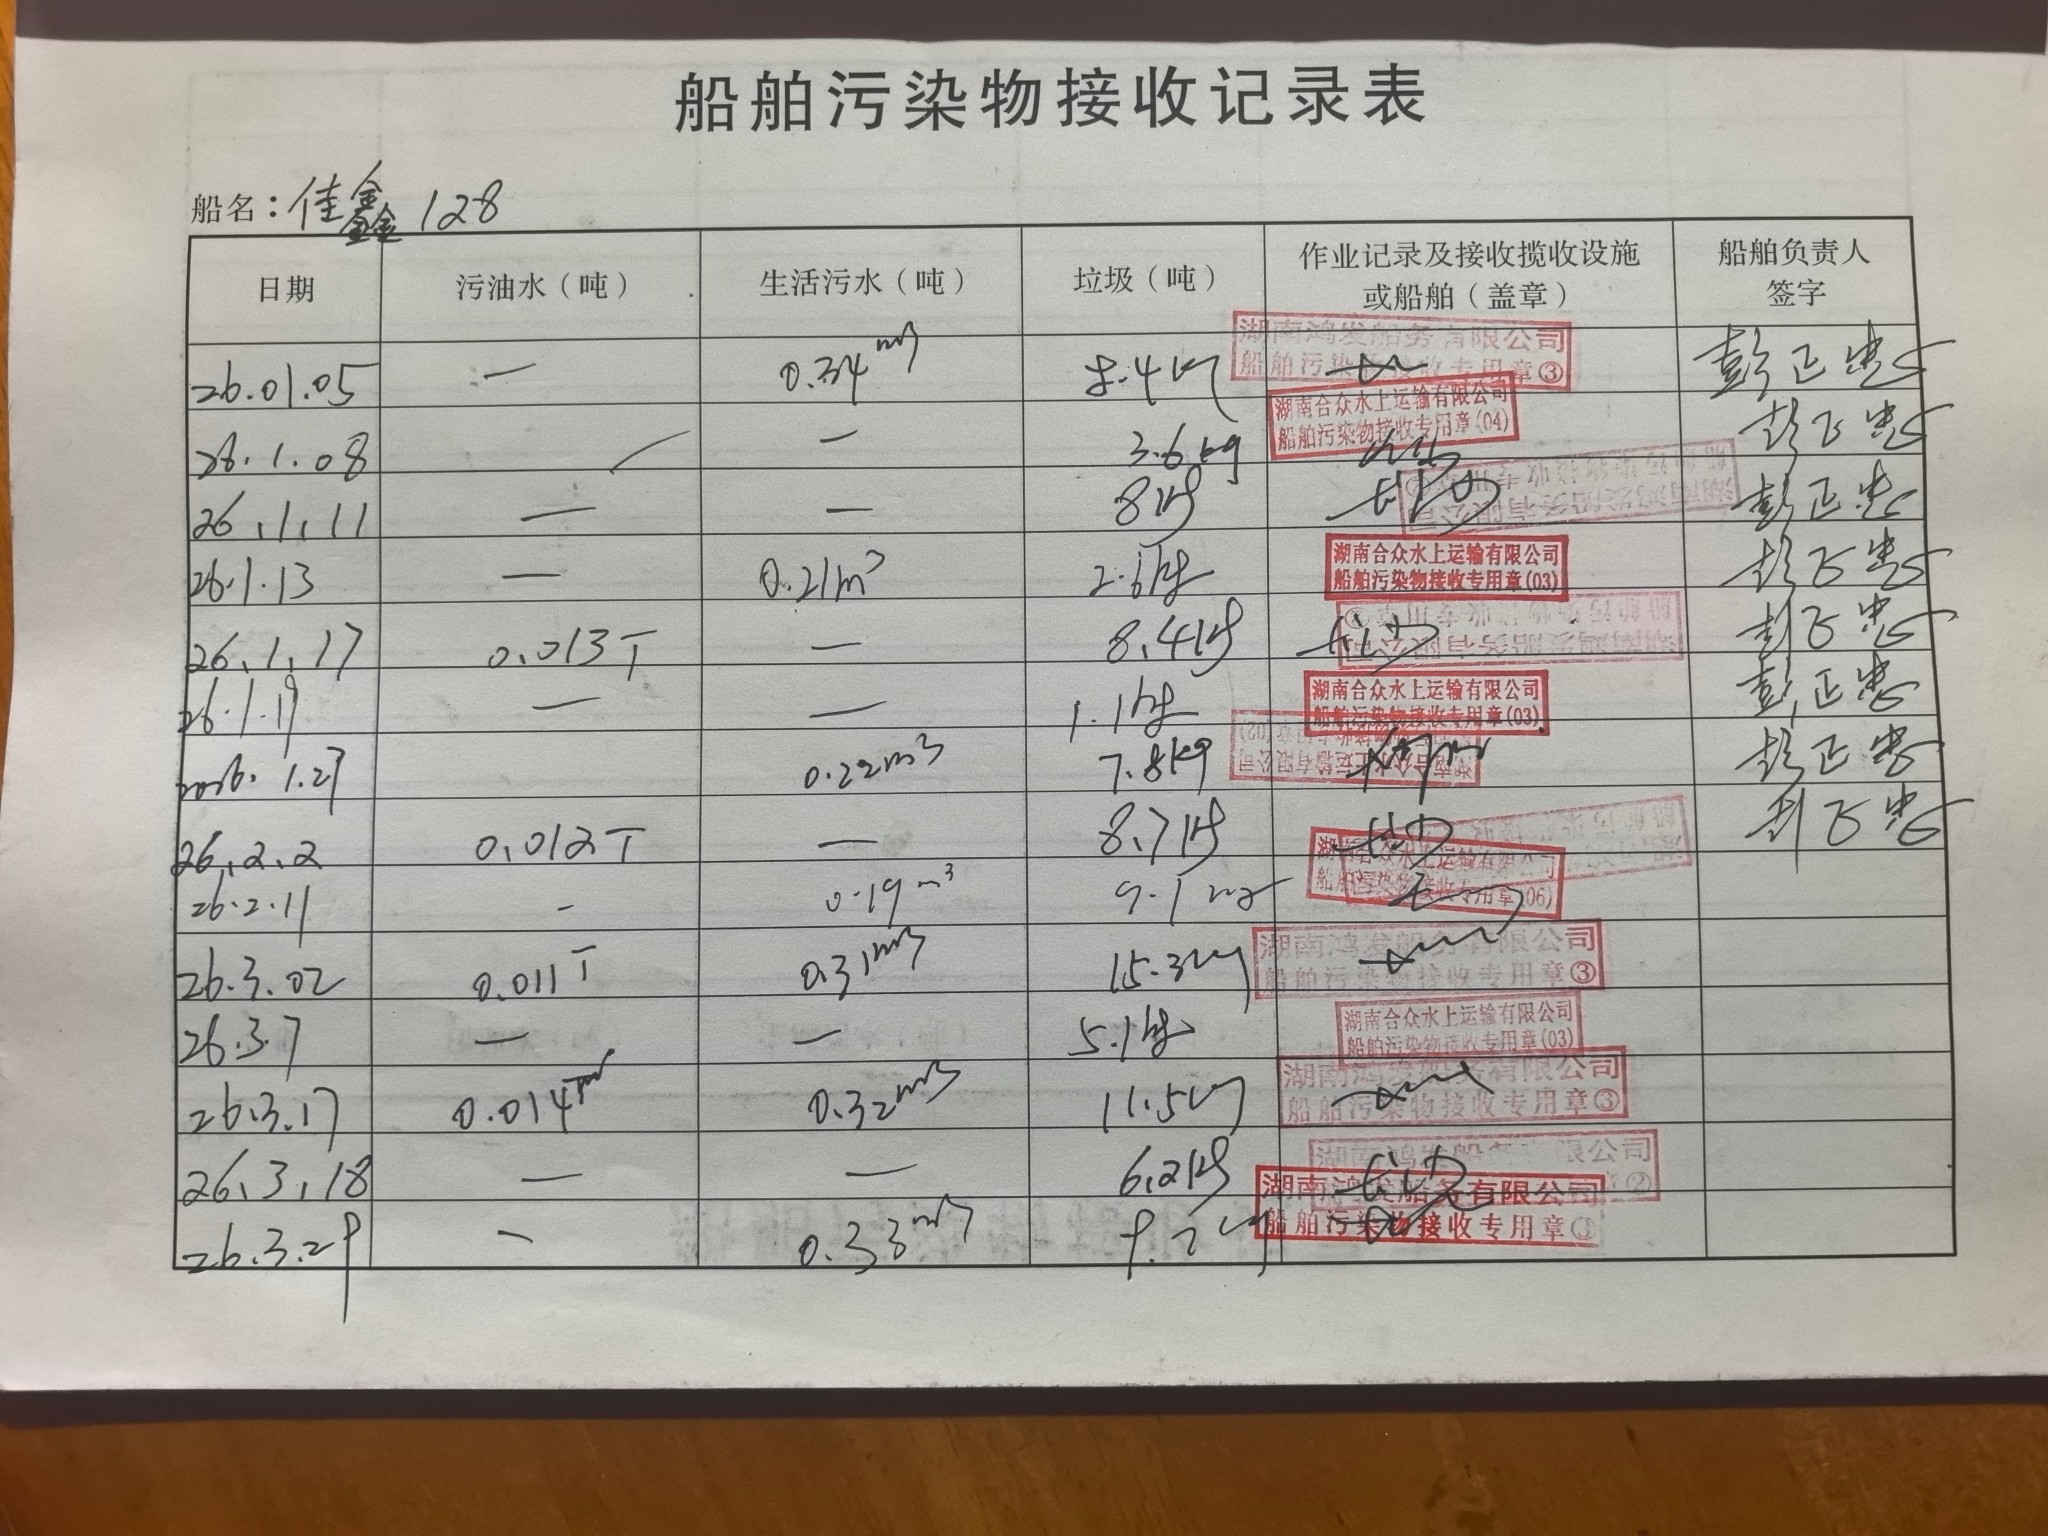 船舶污染物接收记录表
船名：佳鑫 128
日期 污油水（吨） 生活污水（吨） 垃圾（吨） 作业记录及接收揽收设施或船舶（盖章） 船舶负责人签字
26.01.05 — 0.34 m3 8.4kg 湖南鸿发船务有限公司 船舶污染物接收专用章③ 彭正忠
26.1.08 — 3.6kg 湖南合众水上运输有限公司 船舶污染物接收专用章(04) 彭正忠
26.1.11 — — 8kg 湖南鸿发船务有限公司 船舶污染物接收专用章 彭正忠
26.1.13 — 0.21m3 2.6kg 湖南合众水上运输有限公司 船舶污染物接收专用章(03) 彭正忠
26.1.17 0.013T — 8.4kg 湖南鸿发船务有限公司 船舶污染物接收专用章 彭正忠
26.1.19 — — 1.1kg 湖南合众水上运输有限公司 船舶污染物接收专用章(03) 彭正忠
2026.1.27 0.22m3 7.8kg 湖南合众水上运输有限公司 船舶污染物接收专用章(02) 彭正忠
26.2.2 0.012T — 8.7kg 彭正忠
26.2.11 - 0.19m3 9.1kg 湖南合众水上运输有限公司 船舶污染物接收专用章(06)
26.3.02 0.011T 0.31m3 15.3kg 湖南鸿发船务有限公司 船舶污染物接收专用章③
26.3.7 — — 5.1kg 湖南合众水上运输有限公司 船舶污染物接收专用章(03)
26.3.17 0.014T 0.32m3 11.5kg 湖南鸿发船务有限公司 船舶污染物接收专用章③
26.3.18 — — 6.2kg 湖南鸿发船务有限公司 ②
26.3.29 — 0.33m3 9.2kg 湖南鸿发船务有限公司 船舶污染物接收专用章